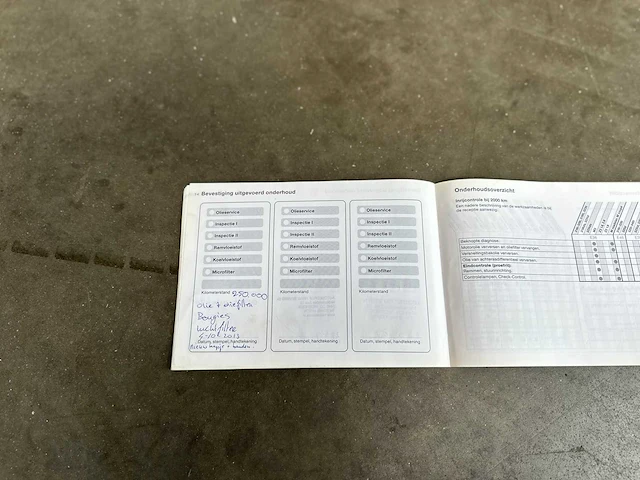 Bevestiging uitgevoerd onderhoud
Olieservice
Inspectie I
Inspectie II
Remvloeistof
Koelvloeistof
Microfilter
Kilometerstand 250.000
olie + oliefilter
Bougies
luchtfilter
Datum, stempel, handtekening
Olieservice
Inspectie I
Inspectie II
Remvloeistof
Koelvloeistof
Microfilter
Kilometerstand
Datum, stempel, handtekening
Olieservice
Inspectie I
Inspectie II
Remvloeistof
Koelvloeistof
Microfilter
Kilometerstand
Datum, stempel, handtekening
Onderhoudsoverzicht
Inrijcontrole bij 2000 km
Een nadere beschrijving van de werkzaamheden is bij
Beknopte diagnose.
Motorolie verversen en oliefilter vervangen.
Versnellingsbakolie verversen.
Olie van achterasdifferentieel verversen.
Eindcontrole (proefrit):
Remmen, stuurinrichting,
Controlelampen, Check-Control.